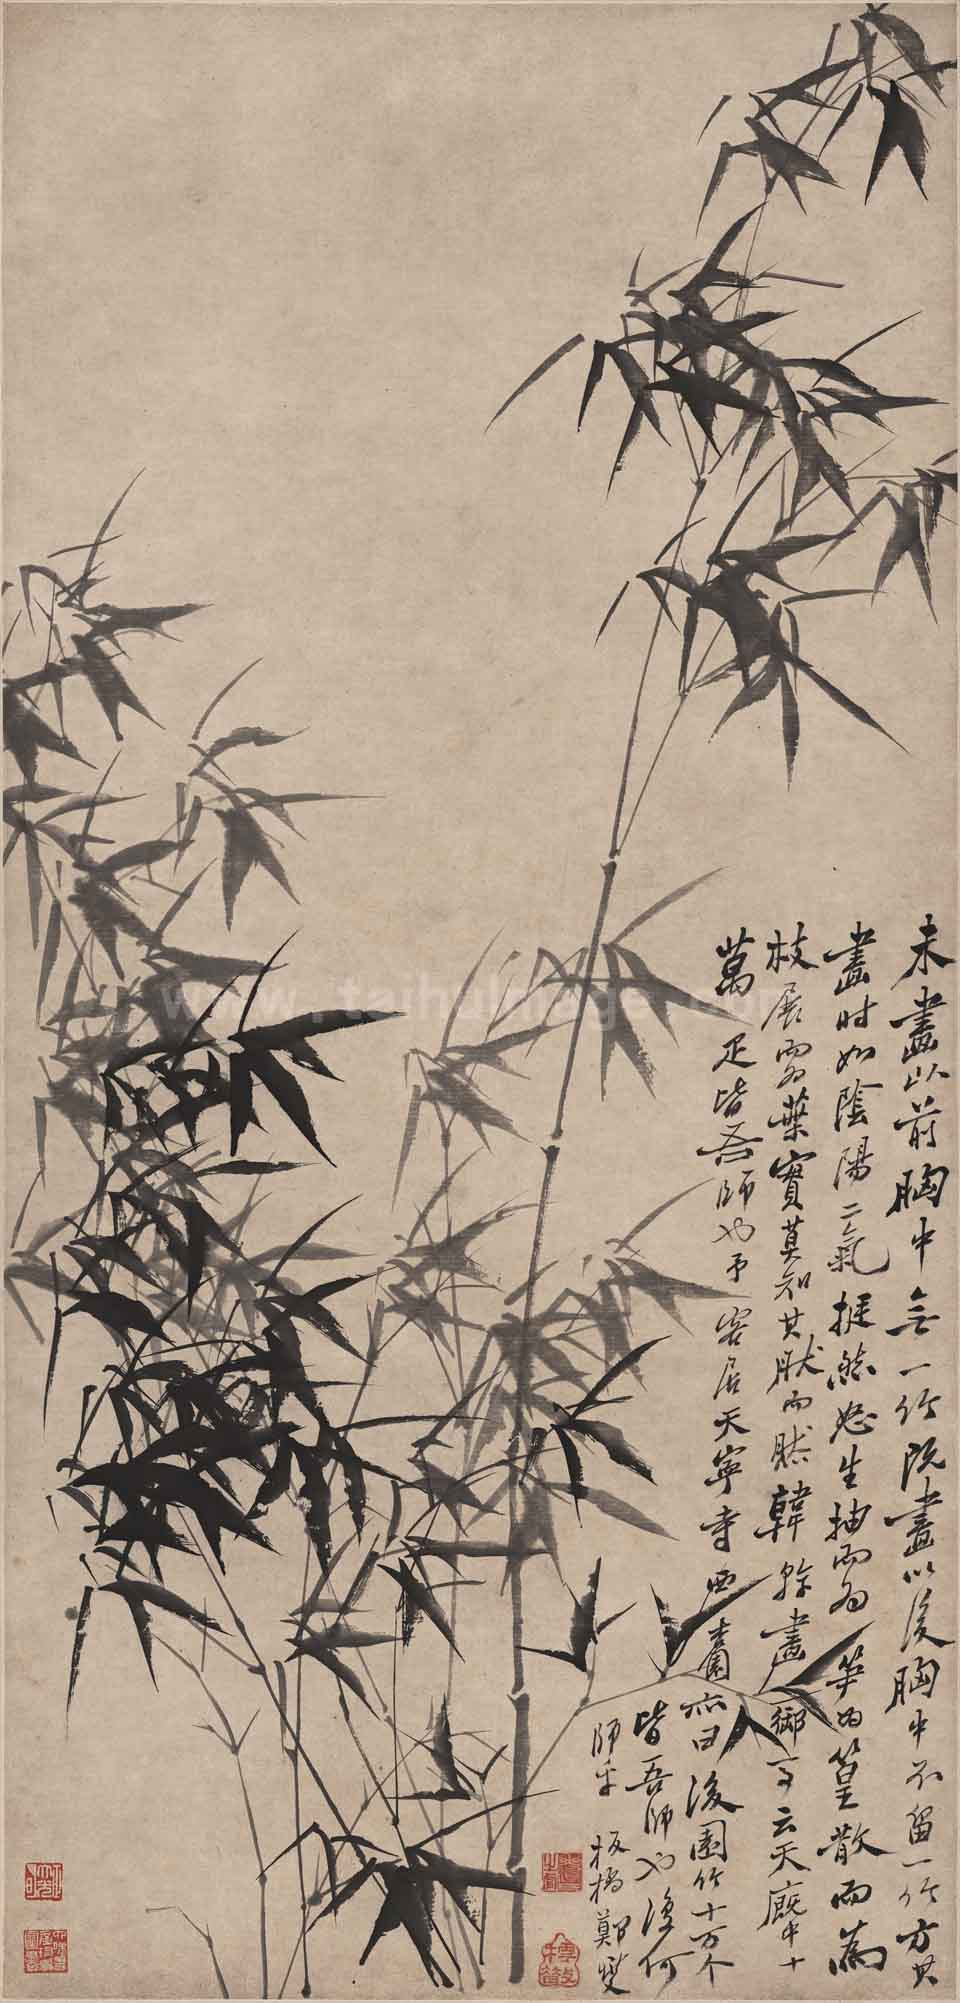 未畫以前胸中無一竹既畫以後胸中不留一竹方其
畫時如陰陽二氣挺然怒生抽而為筍為篁散而為
枝展而為葉實莫知其然而然韓幹畫御馬云天廐中十
萬疋皆吾師也予客居天寧寺西
亦曰後園竹十万个
皆吾師也復何
師乎板橋鄭燮